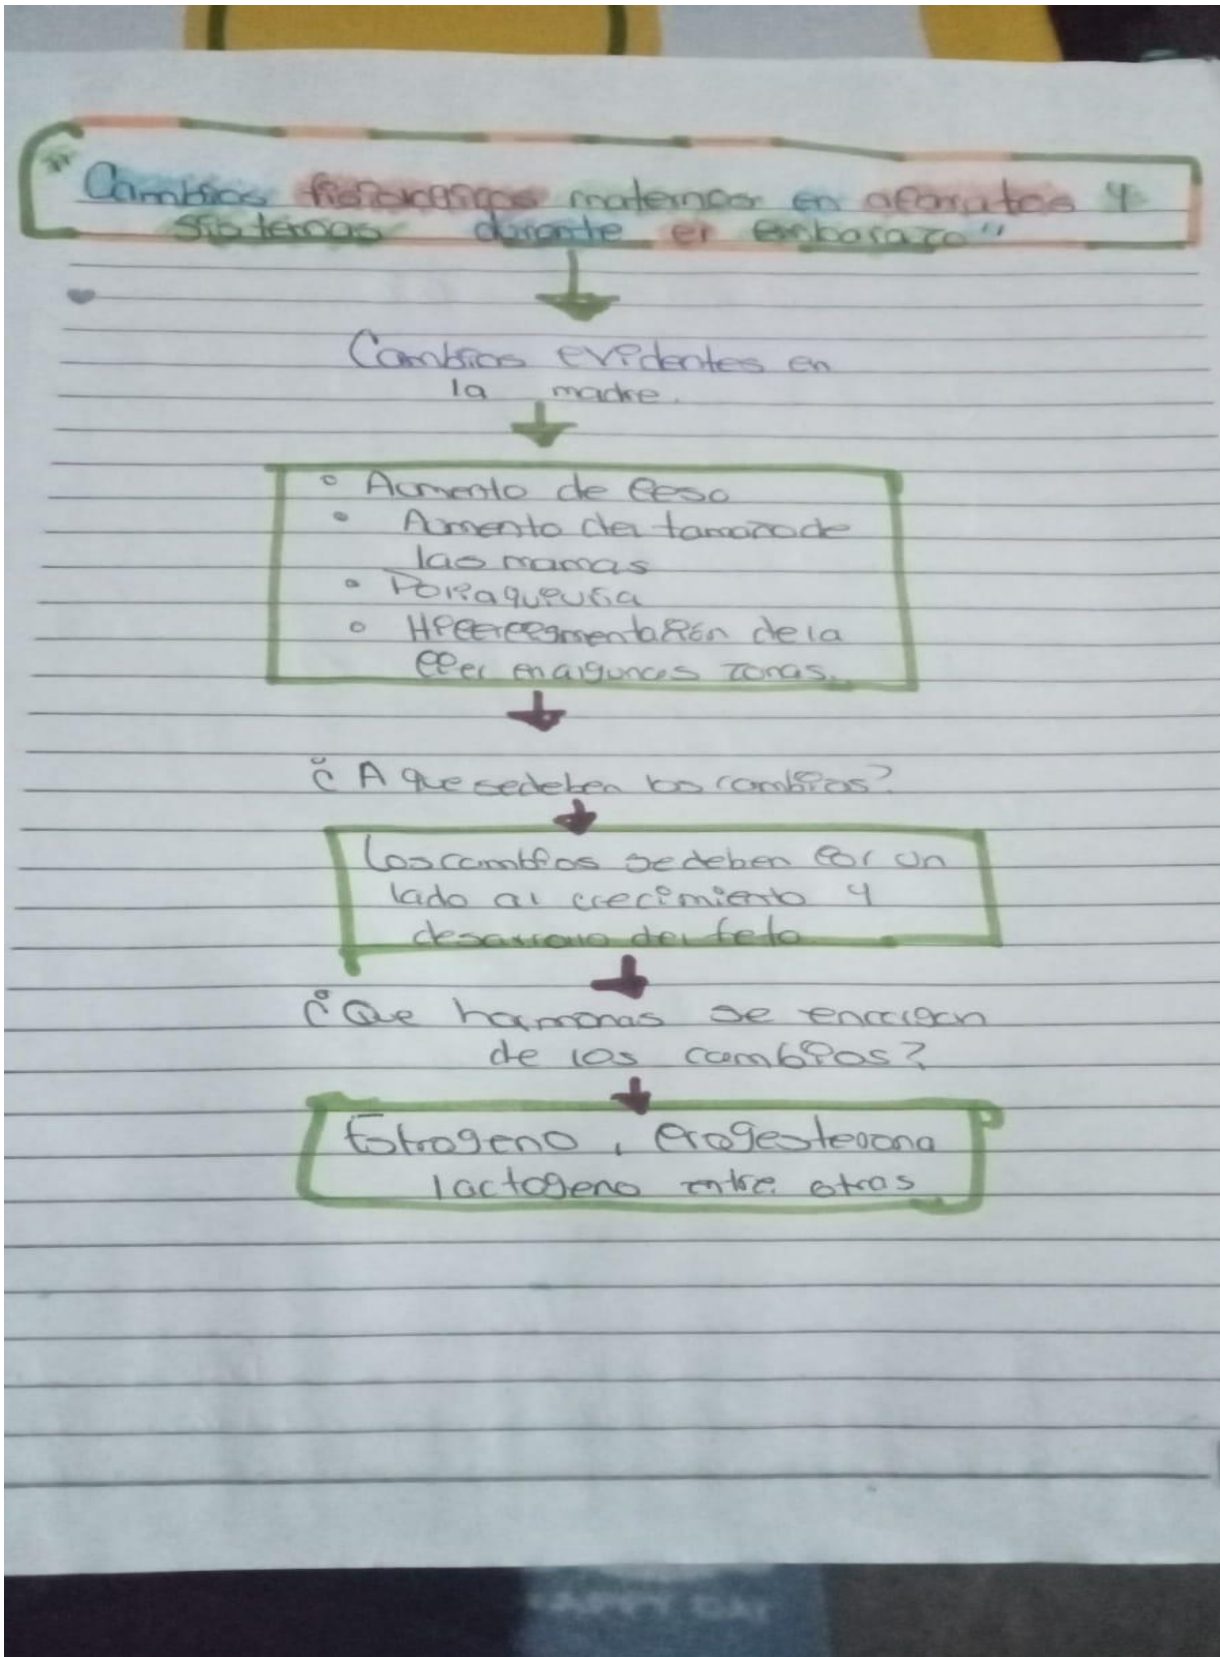 "Cambios fisiologicos maternos en aparatos y
sistemas durante el embarazo"
Cambios evidentes en
la madre.
° Aumento de peso
° Aumento del tamaño de
las mamas
° Polaquiuria
° Hiperpigmentación de la
piel en algunas zonas.
¿A que se deben los cambios?
Los cambios se deben por un
lado al crecimiento y
desarrollo del feto
¿Que hormonas se encargan
de los cambios?
Estrogeno, Progesterona
lactogeno entre otras
HAPPY DAY